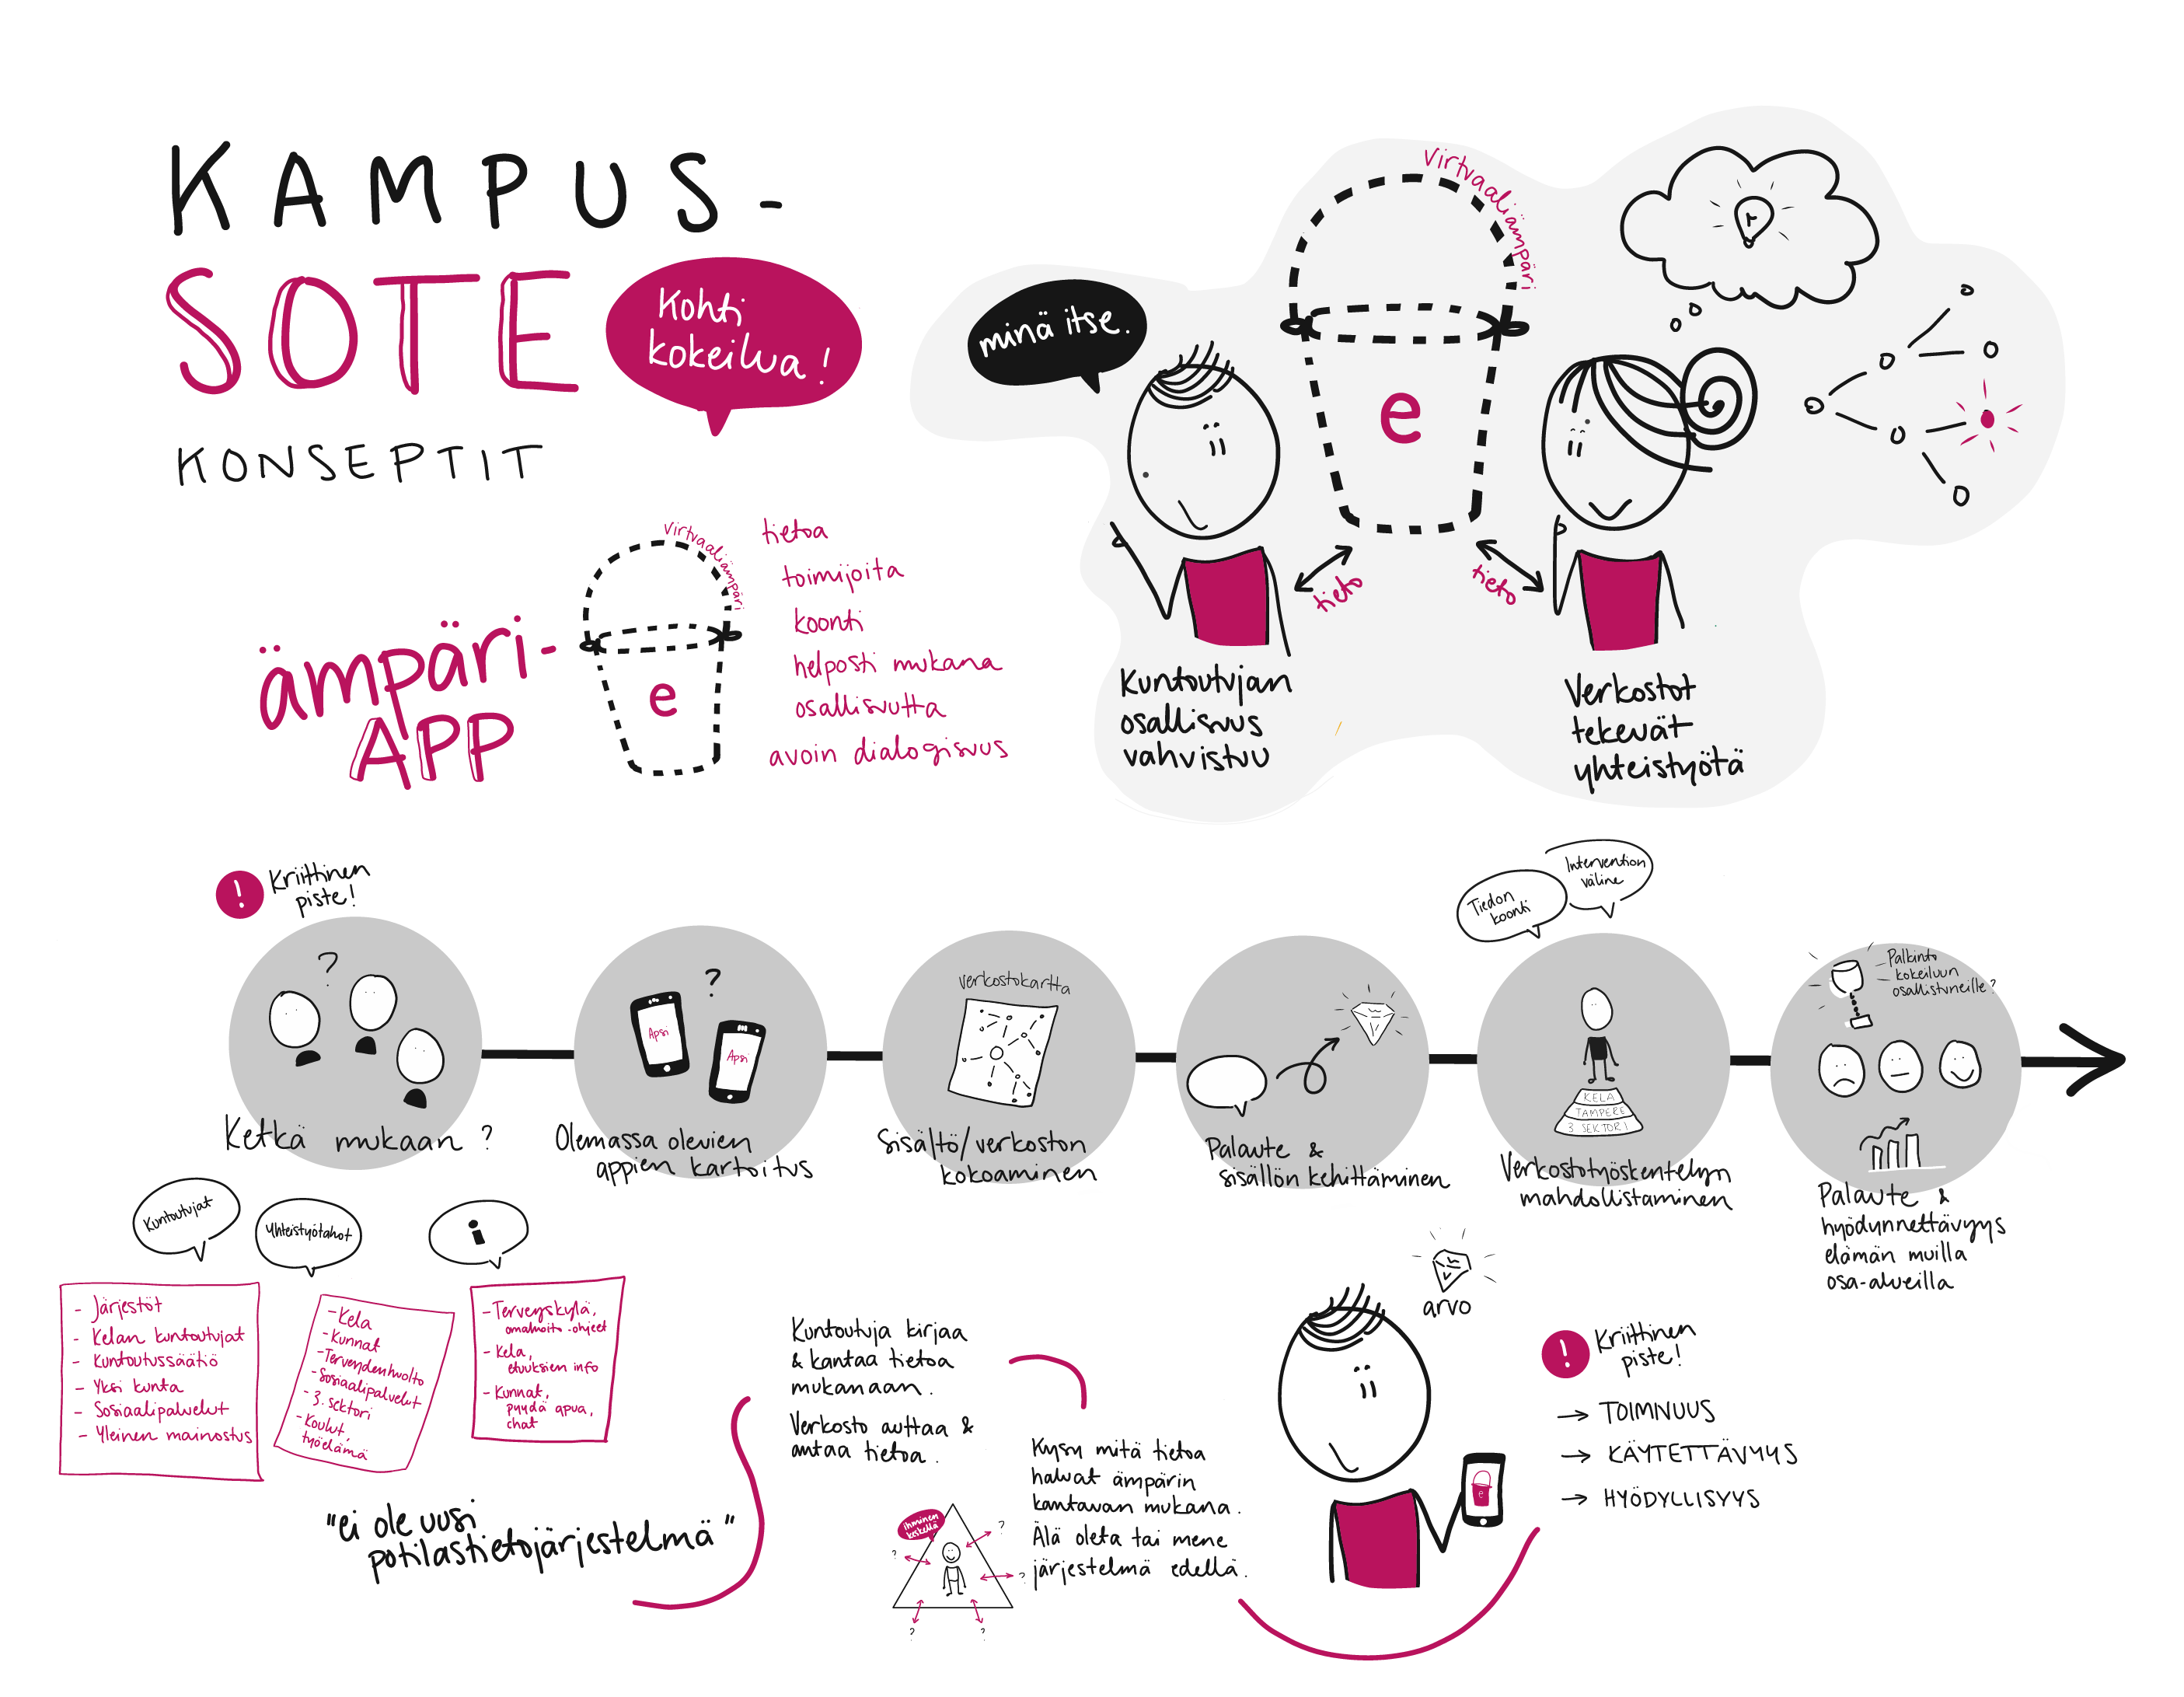 KAMPUS-
SOTE
KONSEPTIT
Kohti
kokeilua!
ämpäri-
APP
virtuaaliämpäri
e
tietoa
toimijoita
koonti
helposti mukana
osallisuutta
avoin dialogisuus
minä itse.
virtuaaliämpäri
e
tieto
tieto
Kuntoutujan
osallisuus
vahvistuu
Verkostot
tekevät
yhteistyötä
!
Kriittinen
piste!
?
Ketkä mukaan?
?
Apsi
Apsi
Olemassa olevien
appien kartoitus
verkostokartta
Sisältö/verkoston
kokoaminen
Palaute &
sisällön kehittäminen
Tiedon
koonti
Intervention
väline
KELA
TAMPERE
3 SEKTORI
Verkostotyöskentelyn
mahdollistaminen
Palkinto
kokeiluun
osallistuneille?
Palaute &
hyödynnettävyys
elämän muilla
osa-alueilla
Kuntoutujat
- Järjestöt
- Kelan kuntoutujat
- Kuntoutussäätiö
- Yksi kunta
- Sosiaalipalvelut
- Yleinen mainostus
Yhteistyötahot
- Kela
- Kunnat
- Terveydenhuolto
- Sosiaalipalvelut
- 3. sektori
- Koulut,
työelämä
i
- Terveyskylä,
omahoito-ohjeet
- Kela,
etuuksien info
- Kunnat,
pyydä apua,
chat
"ei ole uusi
potilastietojärjestelmä"
Kuntoutuja kirjaa
& kantaa tietoa
mukanaan.
Verkosto auttaa &
antaa tietoa.
ihminen
keskellä
?
?
?
?
?
Kysy mitä tietoa
haluat ämpärin
kantavan mukana.
Älä oleta tai mene
järjestelmä edellä.
arvo
e
!
Kriittinen
piste!
→ TOIMIVUUS
→ KÄYTETTÄVYYS
→ HYÖDYLLISYYS